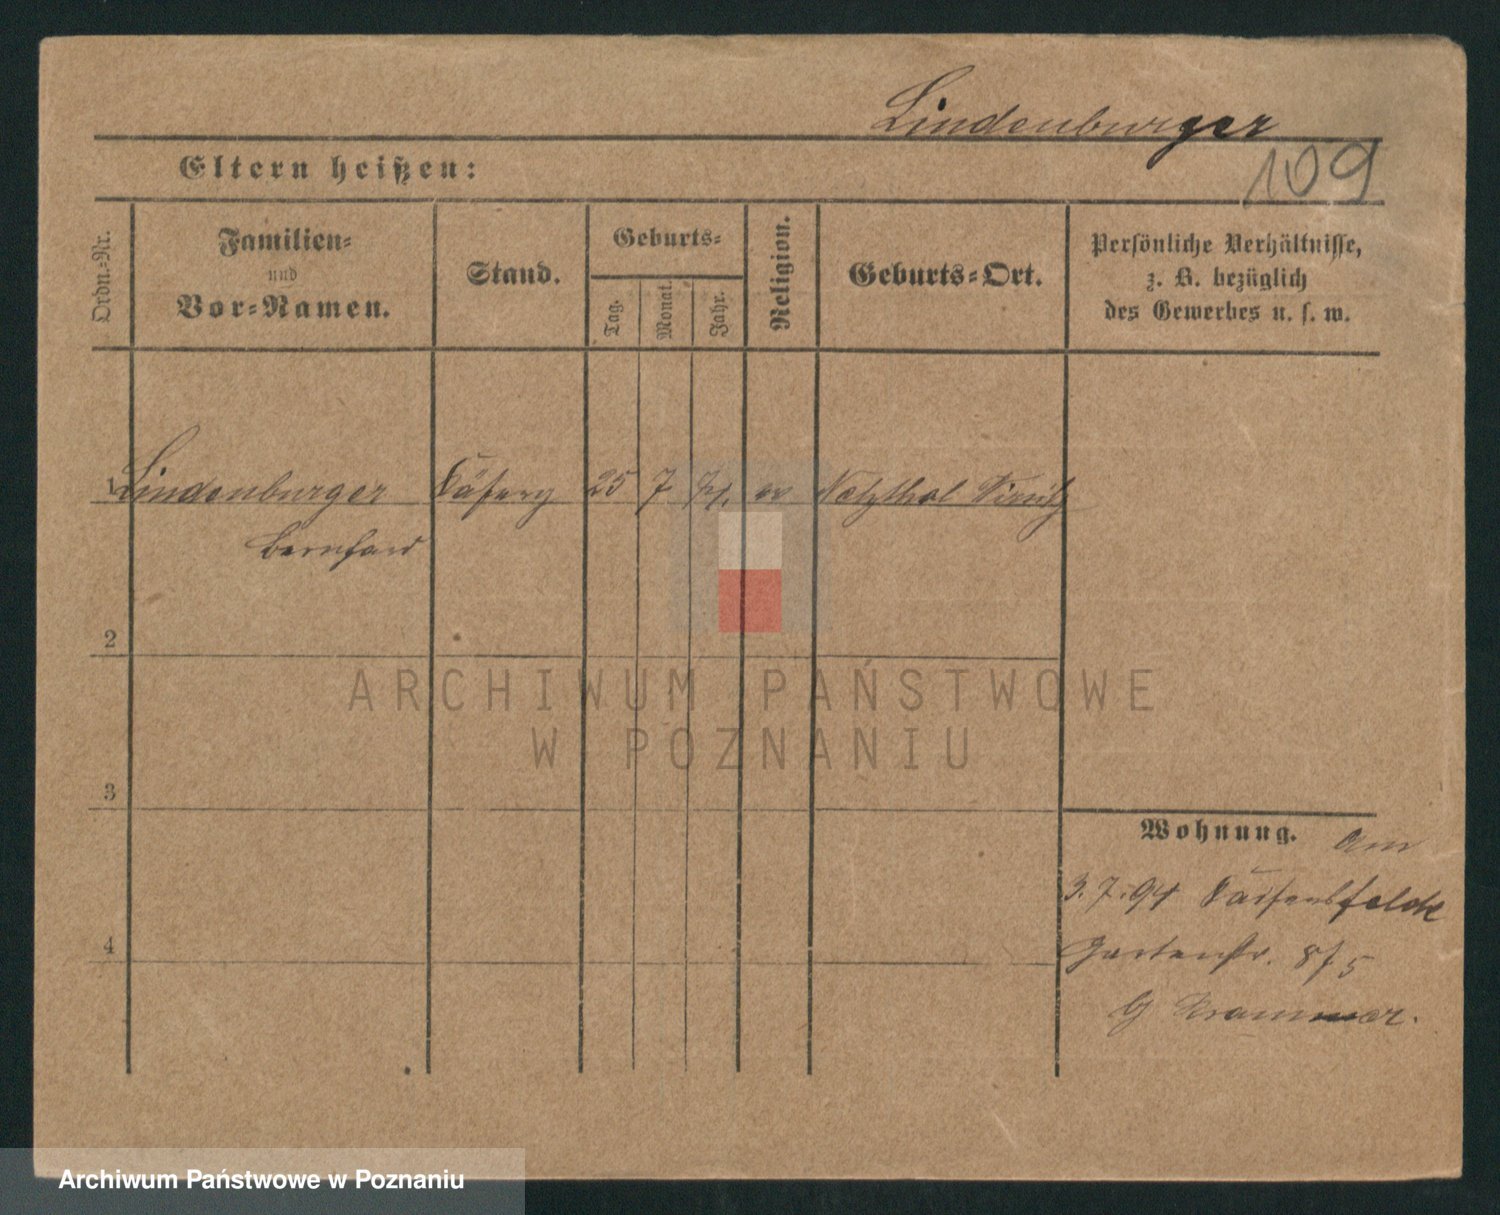 Lindenburger
109
Eltern heißen:
Ordn.-Nr.
Familien-
und
Vor-Namen.
Stand.
Geburts-
Tag.
Monat.
Jahr.
Religion.
Geburts-Ort.
Persönliche Verhältnisse,
z. B. bezüglich
des Gewerbes u. s. w.
1 Lindenburger 25 7 71. ev Netzthal Wirsitz
Bernhard
2
3
4
Wohnung. Am
3.7.94
Gartenstr. 8/5
Krammer.
ARCHIWUM PAŃSTWOWE
W POZNANIU
Archiwum Państwowe w Poznaniu